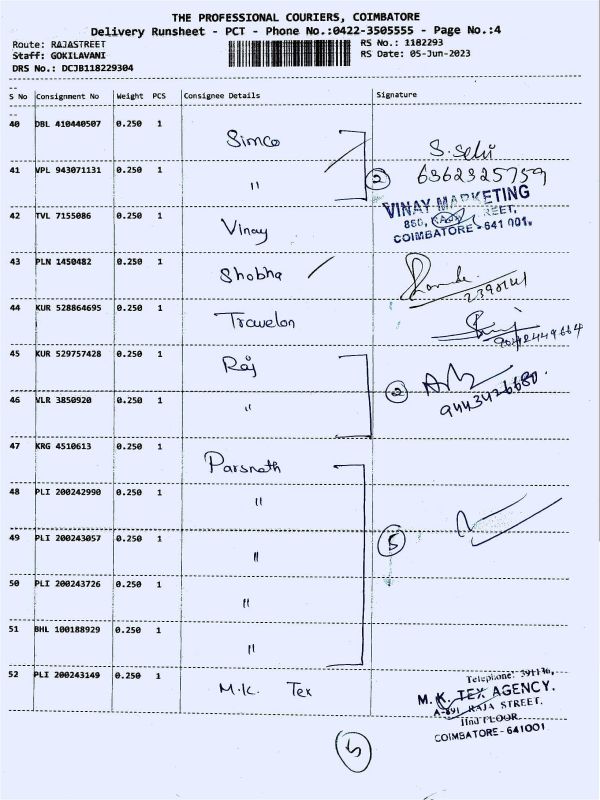 THE PROFESSIONAL COURIERS, COIMBATORE
Delivery Runsheet - PCT - Phone No.:0422-3505555 - Page No.:4
Route: RAJASTREET RS No.: 1182293
Staff: GOKILAVANI RS Date: 05-Jun-2023
DRS No.: DCJB118229304
S No Consignment No Weight PCS Consignee Details Signature
40 DBL 410440507 0.250 1 Simco
S. Selvi
41 VPL 943071131 0.250 1 " 2 6362325759
VINAY MARKETING
42 TVL 7155086 0.250 1 Vinay 856, RAJA STREET,
COIMBATORE - 641 001.
43 PLN 1450482 0.250 1 Shobha
44 KUR 528864695 0.250 1 Travelon
45 KUR 529757428 0.250 1 Raj
46 VLR 3850920 0.250 1 " 2 9443426680.
47 KRG 4510613 0.250 1 Parsnath
48 PLI 200242990 0.250 1 "
49 PLI 200243057 0.250 1 " 5
50 PLI 200243726 0.250 1 "
51 BHL 100188929 0.250 1 "
52 PLI 200243149 0.250 1 M.K. Tex
Telephone: 391136,
M. K. TEX AGENCY.
A-891 RAJA STREET,
IInd FLOOR
COIMBATORE - 641001
5